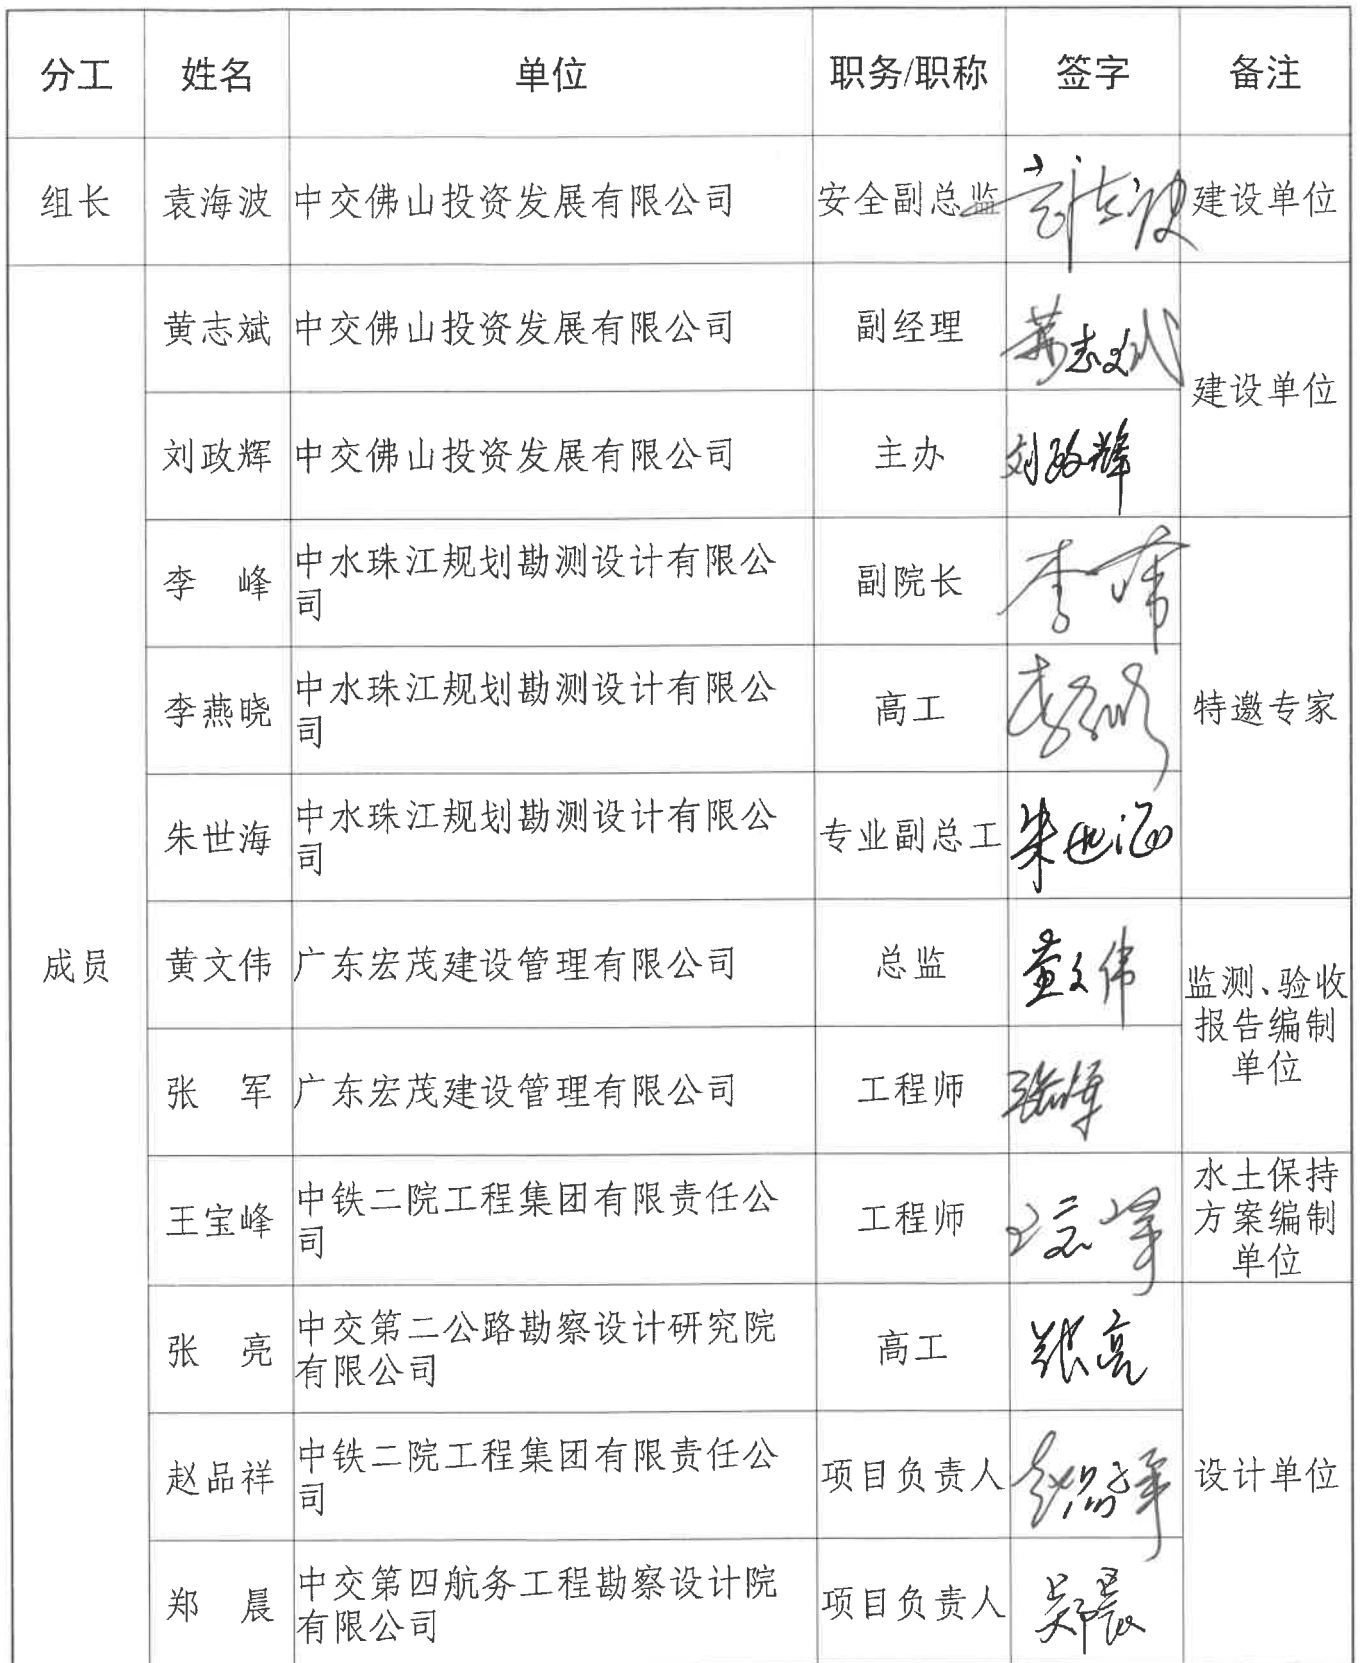 分工 姓名 单位 职务/职称 签字 备注
组长 袁海波 中交佛山投资发展有限公司 安全副总监 建设单位
黄志斌 中交佛山投资发展有限公司 副经理 黄志斌
建设单位
刘政辉 中交佛山投资发展有限公司 主办 刘政辉
李 峰 中水珠江规划勘测设计有限公
司
副院长 李峰
李燕晓 中水珠江规划勘测设计有限公
司
高工
特邀专家
朱世海 中水珠江规划勘测设计有限公
司
专业副总工 朱世海
成员
黄文伟 广东宏茂建设管理有限公司 总监 黄文伟
监测、验收
报告编制
单位
张 军 广东宏茂建设管理有限公司 工程师
王宝峰 中铁二院工程集团有限责任公
司
工程师
水土保持
方案编制
单位
张 亮 中交第二公路勘察设计研究院
有限公司
高工 张亮
赵品祥 中铁二院工程集团有限责任公
司
项目负责人
设计单位
郑 晨 中交第四航务工程勘察设计院
有限公司
项目负责人 郑晨